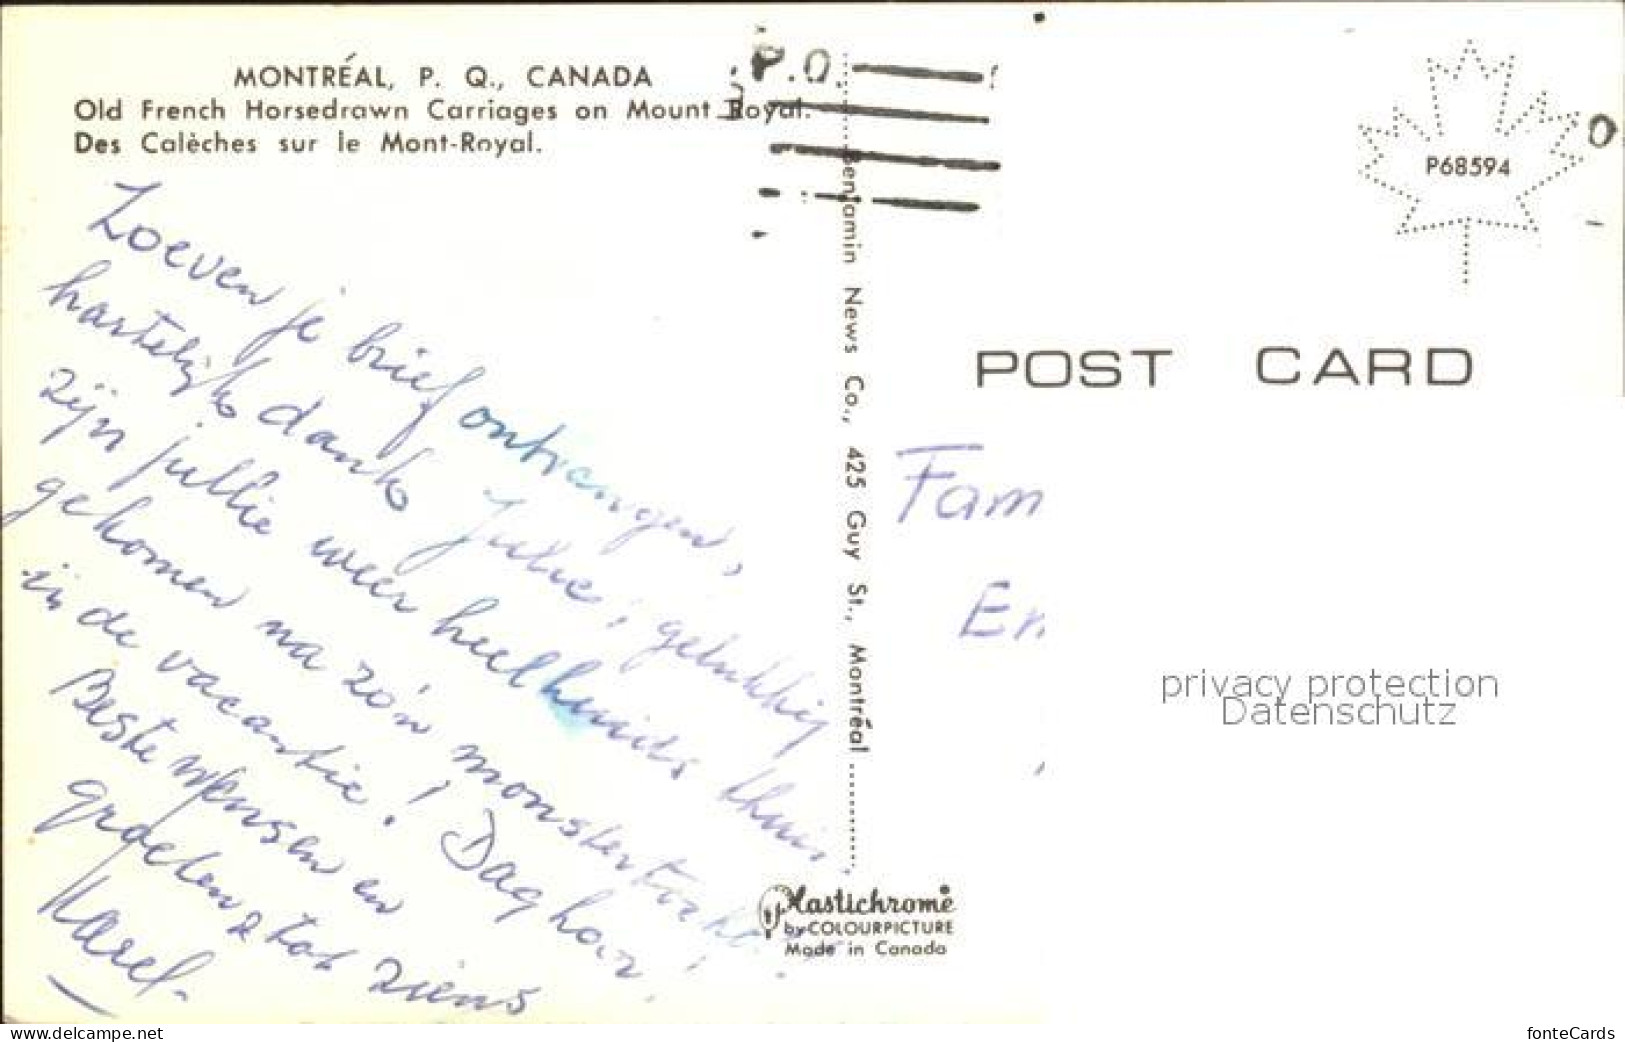 MONTRÉAL, P. Q., CANADA
Old French Horsedrawn Carriages on Mount Royal.
Des Calèches sur le Mont-Royal.
P.Q.
P68594
POST CARD
Benjamin News Co., 425 Guy St., Montréal
Zoeven je brief ontvangen,
hartelijk dank Julie; gelukkig
zijn jullie weer heelhuids thuis
gekomen na zo'n monstertocht
in de vacantie! Dag hoor!
Beste wensen en
groeten & tot ziens
Karel.
Fam
En
privacy protection
Datenschutz
Plastichrome
by COLOURPICTURE
Made in Canada
www.delcampe.net
fonteCards